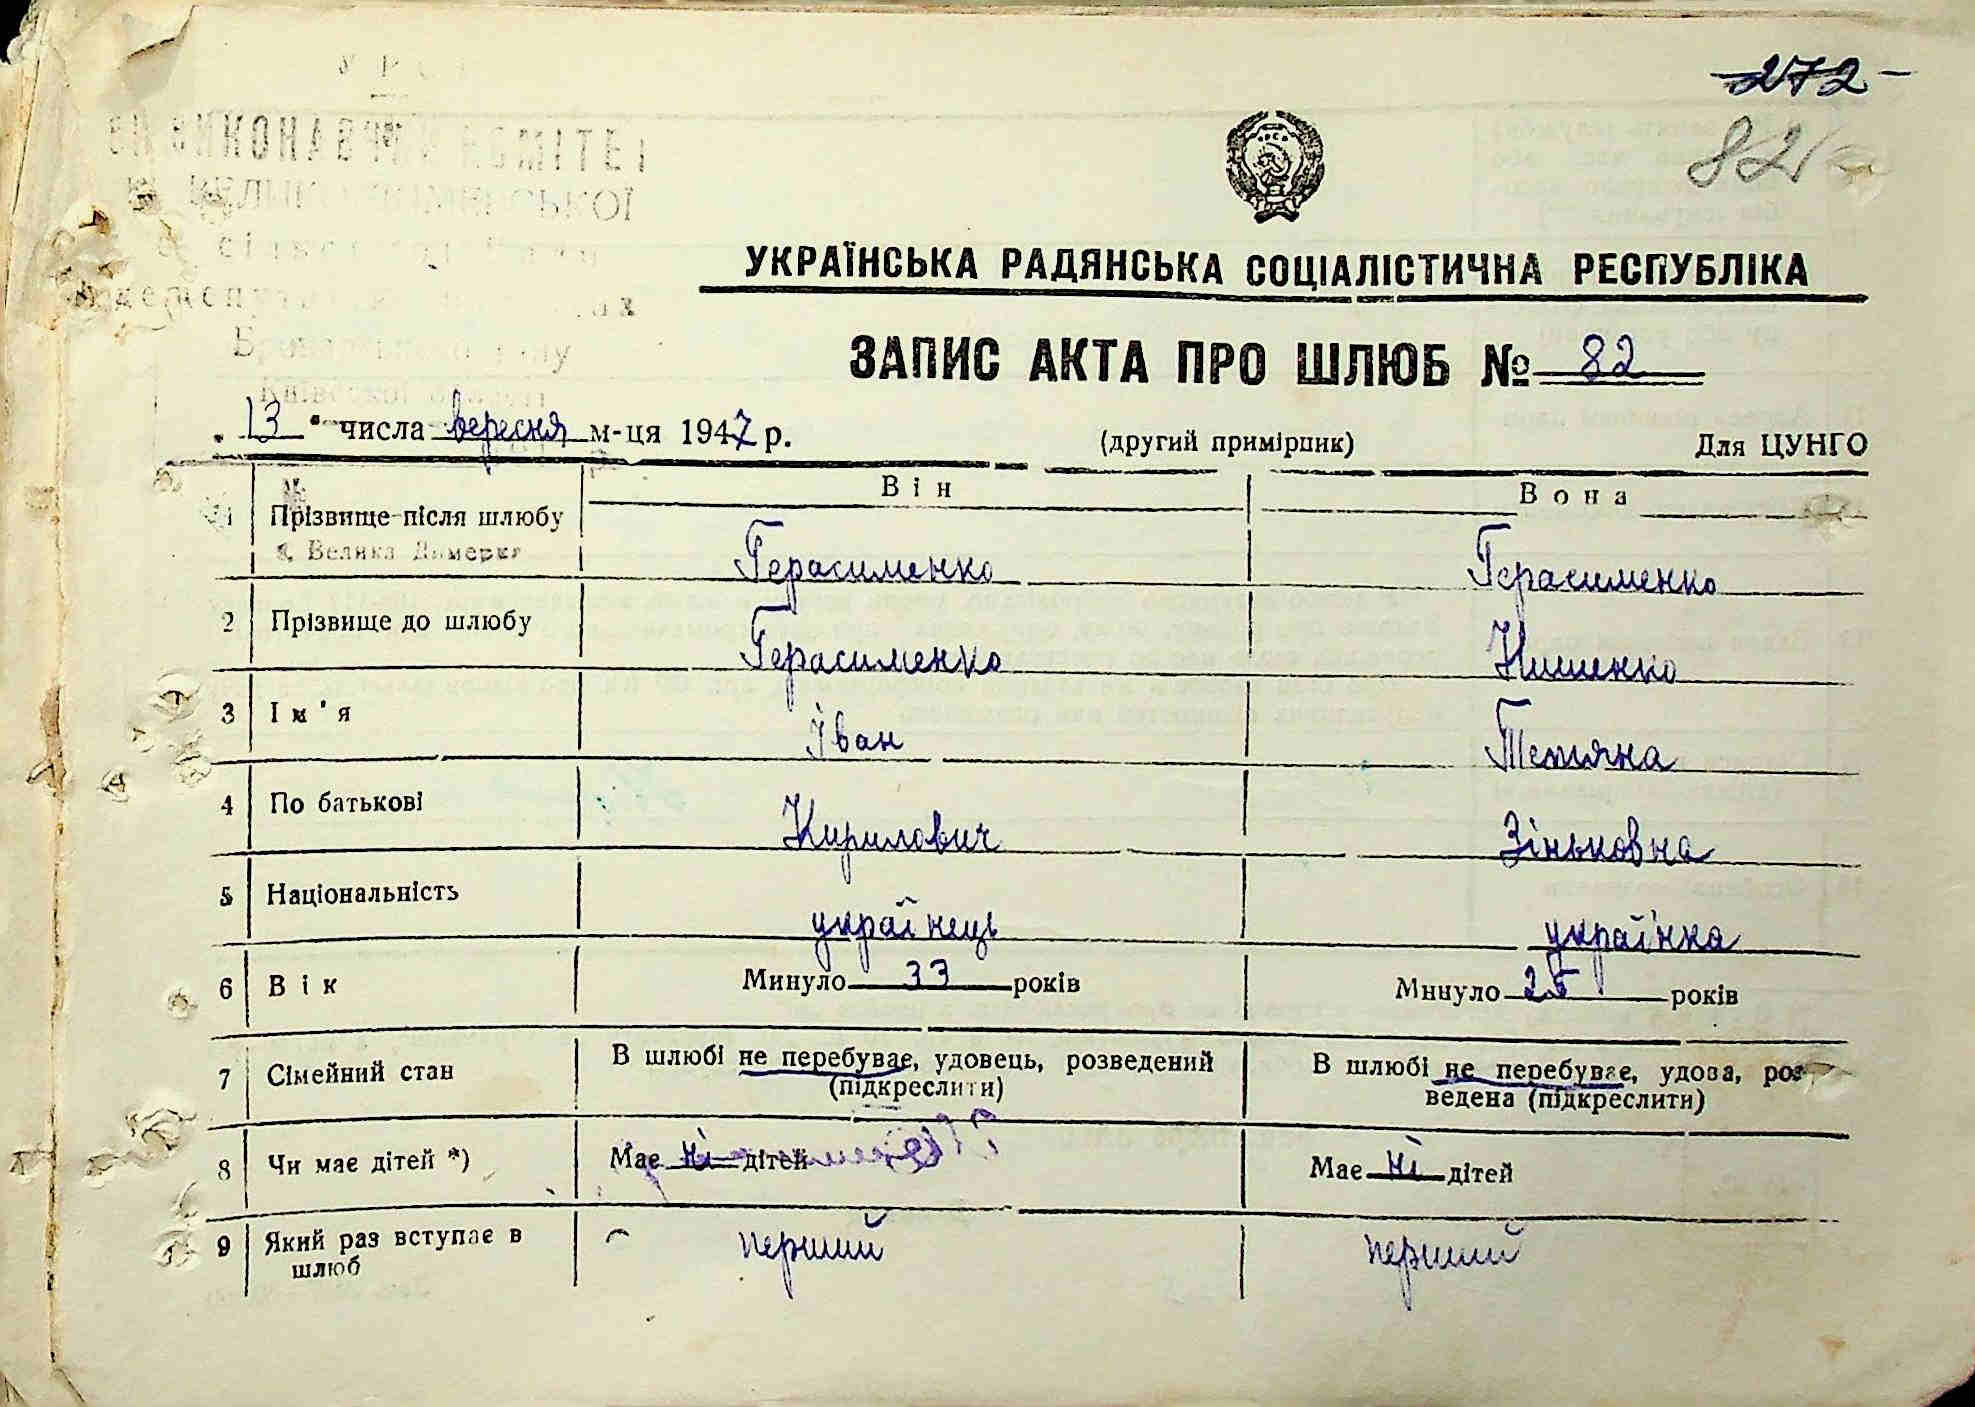 272
82
УРСР
ВИКОНАВЧИЙ КОМІТЕТ
ВЕЛИКО-ДИМЕРСЬКОЇ
сільської Ради
депутатів трудящих
Броварського р-ну
Київської області
УКРАЇНСЬКА РАДЯНСЬКА СОЦІАЛІСТИЧНА РЕСПУБЛІКА
ЗАПИС АКТА ПРО ШЛЮБ № 82
"13" числа вересня м-ця 1947 р. (другий примірник) Для ЦУНГО
Він Вона
1 Прізвище після шлюбу Герасименко Герасименко
с. Велика Димерка
2 Прізвище до шлюбу Герасименко Нишенко
3 Ім'я Іван Тетяна
4 По батькові Кирилович Зіньковна
5 Національність українець українка
6 Вік Минуло 33 років Минуло 25 років
7 Сімейний стан В шлюбі не перебуває, удовець, розведений (підкреслити) В шлюбі не перебуває, удова, розведена (підкреслити)
8 Чи має дітей *) Має ні дітей Має ні дітей
9 Який раз вступає в шлюб перший перший